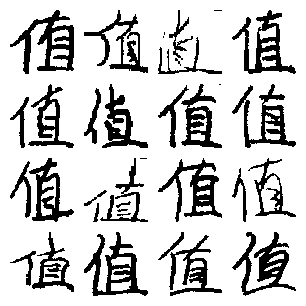 值值值值
值值值值
值值值值
值值值值